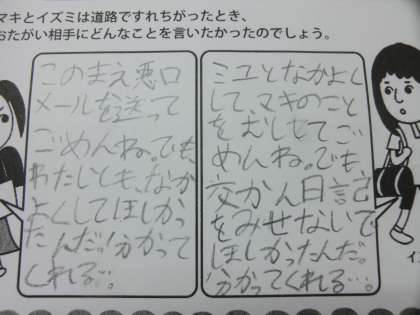 マキとイズミは道路ですれちがったとき、
おたがい相手にどんなことを言いたかったのでしょう。
このまえ悪口
メールを送って
ごめんね。でも、
わたしとも、なか
よくしてほしかっ
たんだ。分かって
くれる…。
ミユとなかよく
して、マキのこと
をむししてご
めんね。でも、
交かん日記
をみせないで
ほしかったんだ。
分かってくれる…。